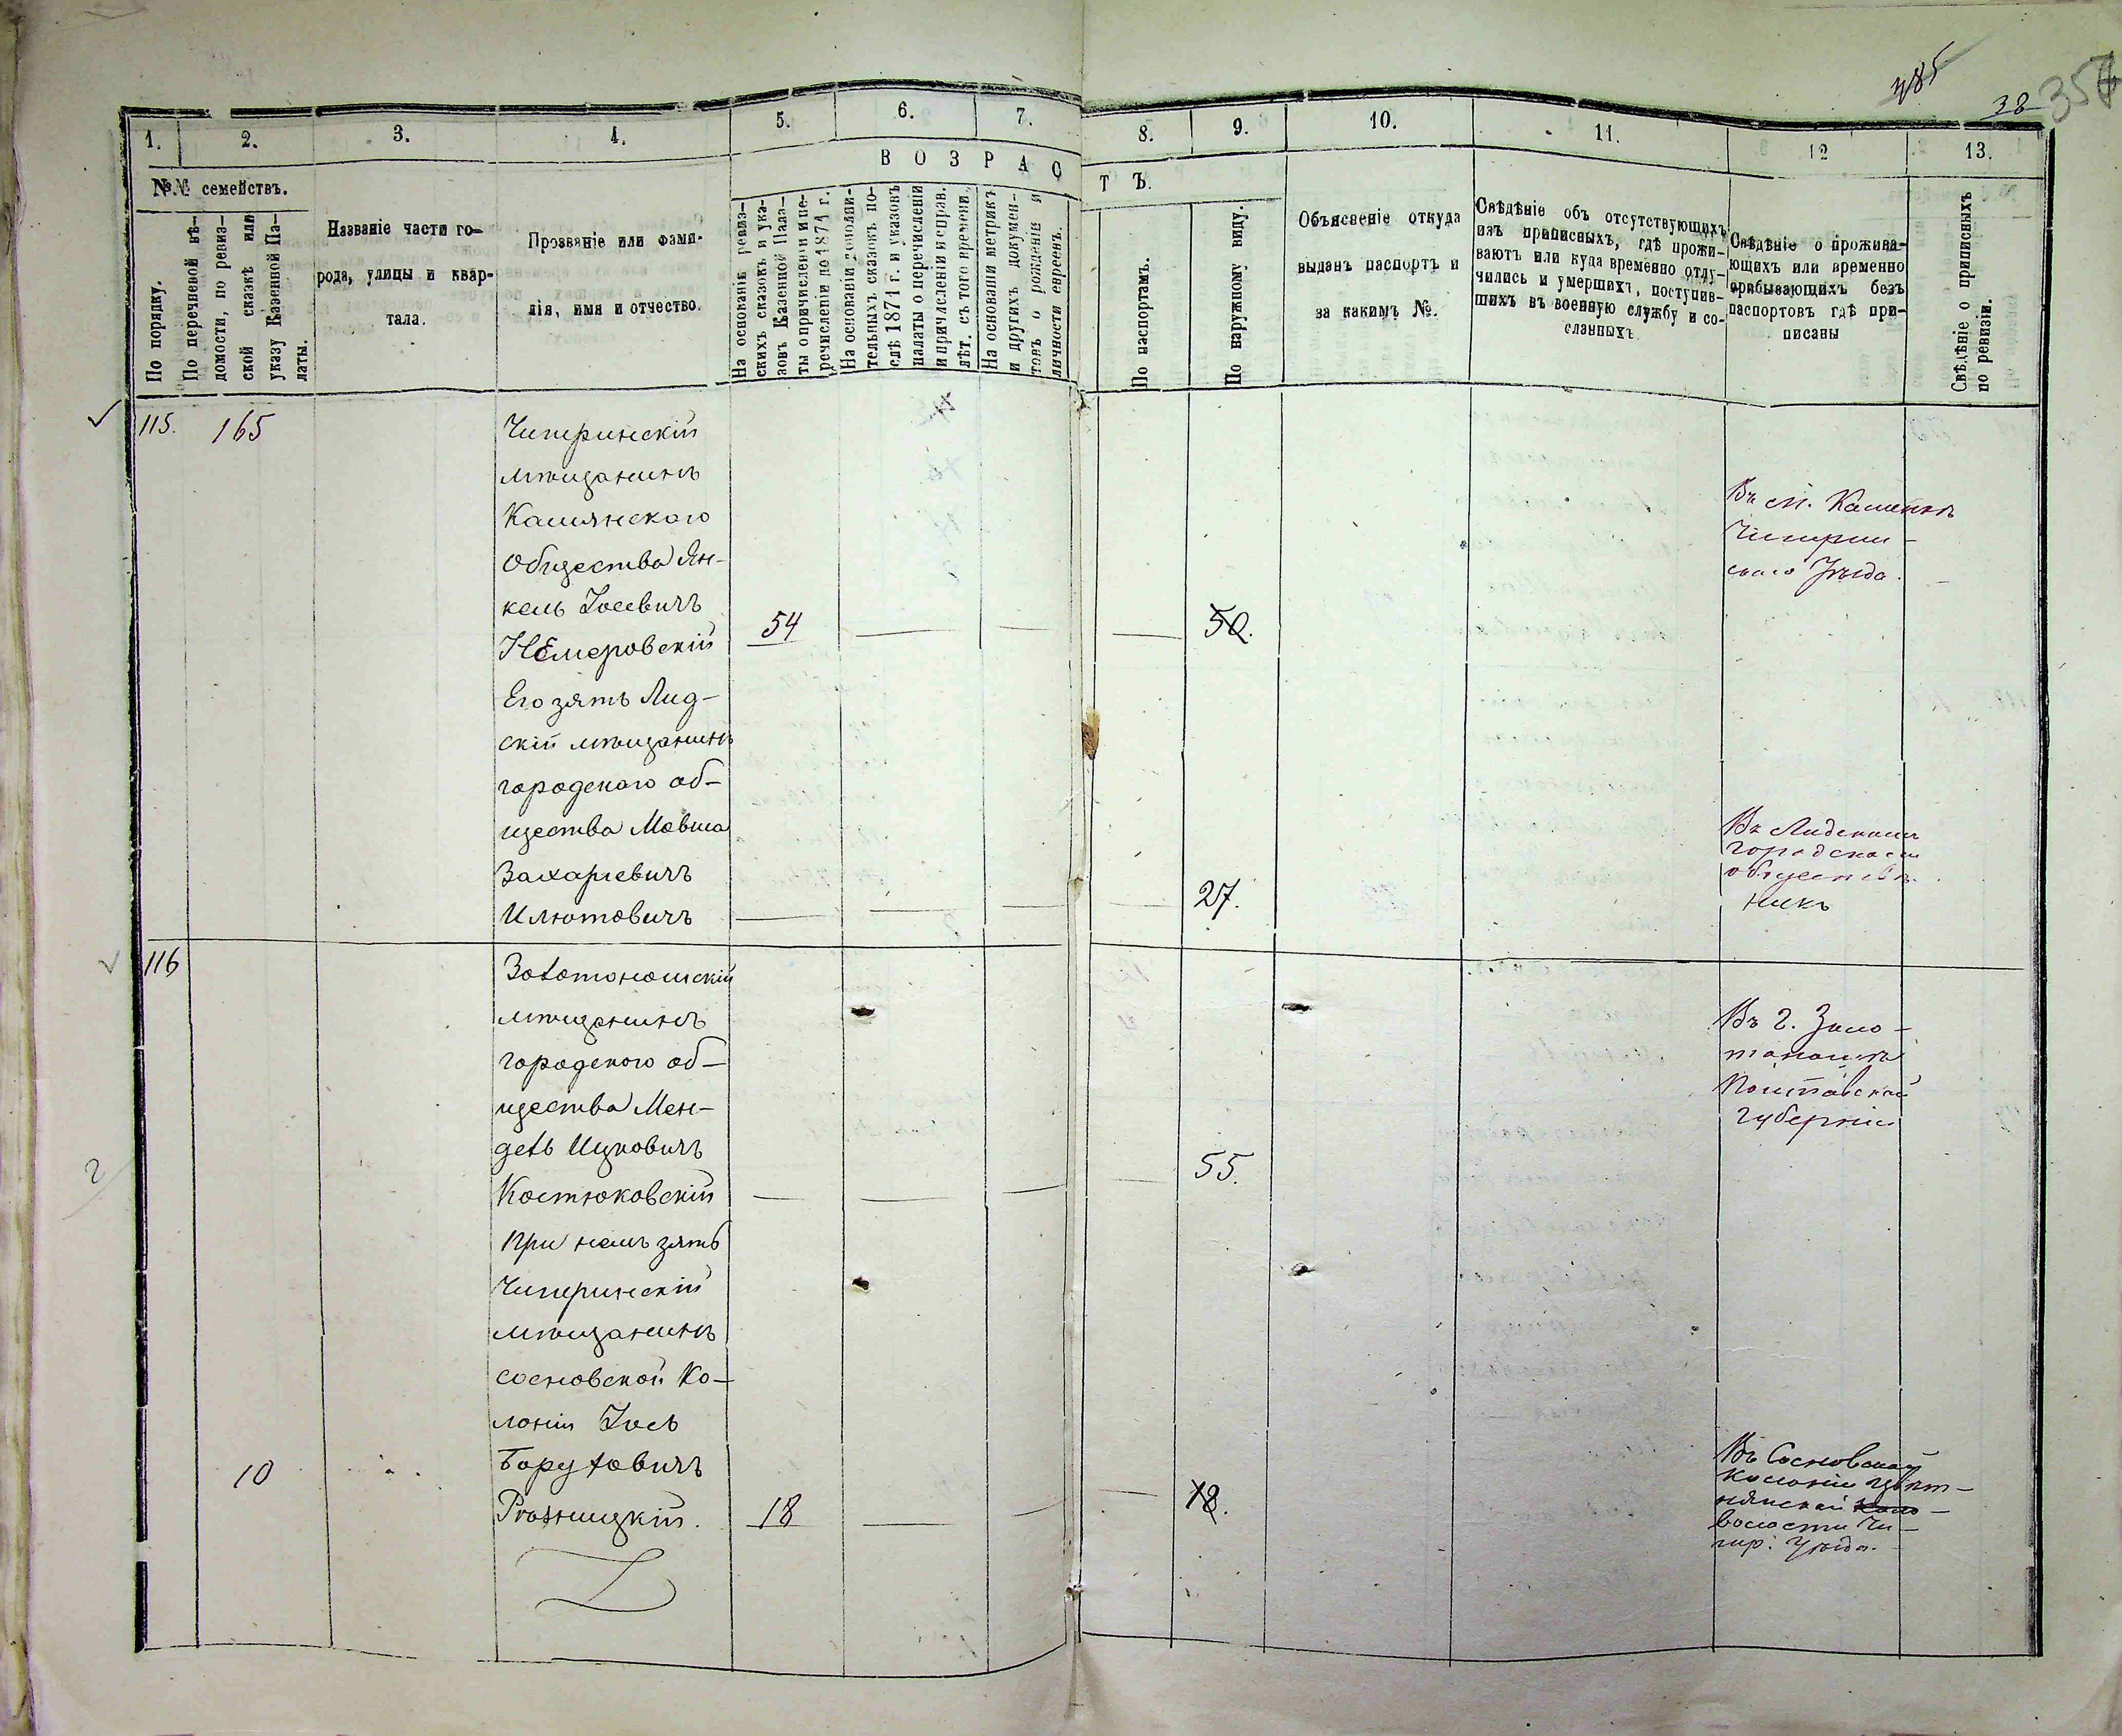 485
38
357
1.
2.
3.
4.
5.
6.
7.
8.
9.
10.
11.
12
13.
№№ семействъ.
ВОЗРАС
ТЪ.
По порядку.
По перечневой вѣ-
домости, по ревиз-
ской сказкѣ или
указу Казенной Па-
латы.
Названіе части го-
рода, улицы и квар-
тала.
Прозваніе или фами-
лія, имя и отчество.
На основаніи ревиз-
скихъ сказокъ и ука-
зовъ Казенной Пала-
ты о причисленіи и пе-
речисленіи до 1871 г.
На основаніи дополни-
тельныхъ сказокъ по-
слѣ 1871 г. и указовъ
палаты о перечисленіи
и причисленіи и справ.
лѣт. съ того времени.
На основаніи метрикъ
и другихъ докумен-
товъ о рожденіи и
личности евреевъ.
По паспортамъ.
По наружному виду.
Объясненіе откуда
выданъ паспортъ и
за какимъ №.
Свѣдѣніе объ отсутствующихъ
изъ приписныхъ, гдѣ прожи-
ваютъ или куда временно отлу-
чились и умершихъ, поступив-
шихъ въ военную службу и со-
сланныхъ
Свѣдѣніе о прожива-
ющихъ или временно
прибывающихъ безъ
паспортовъ гдѣ при-
писаны
Свѣдѣніе о приписныхъ
по ревизіи.
115.
165
Чигиринскій
мѣщанинъ
Камянского
Общества Ян-
кель Іосевичъ
Немеровскій
54
50.
Въ м. Каменкѣ
Чигирин-
скаго Уѣзда.
Его зять Лид-
скій мѣщанинъ
городского об-
щества Мовша
Захарієвичъ
Илютовичъ
27.
Въ Лидскомъ
городскомъ
обществѣ
116
Золотоношскій
мѣщанинъ
городского об-
щества Мен-
дель Ицковичъ
Костюковскій
55.
Въ г. Золо-
тоношѣ
Полтавской
губерніи
При немъ зять
Чигиринскій
мѣщанинъ
сосновской Ко-
лоніи Іось
Боруховичъ
10
18
18.
Въ Сосновской
колоніи Цвѣт-
нянской
волости Чи-
гир. Уѣзда.